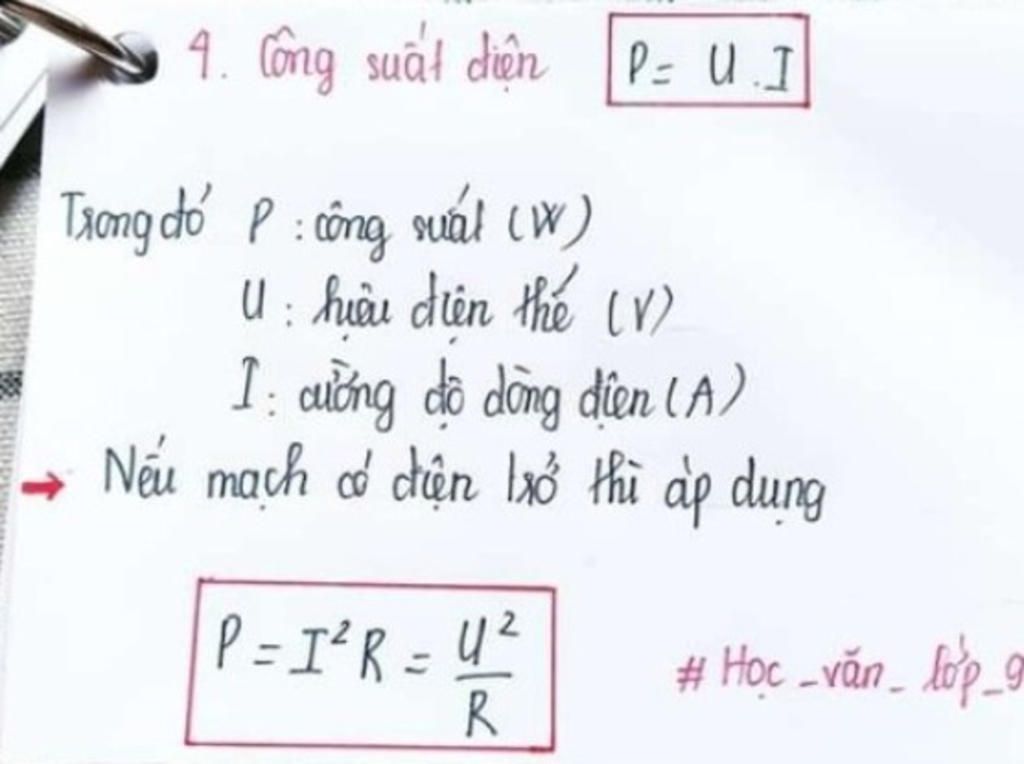 4. Công suất điện P = U . I
Trong đó P : công suất (W)
U : hiệu điện thế (V)
I : cường độ dòng điện (A)
→ Nếu mạch có điện trở thì áp dụng
P = I² R = U² / R
# Học _ văn _ lớp _ 9